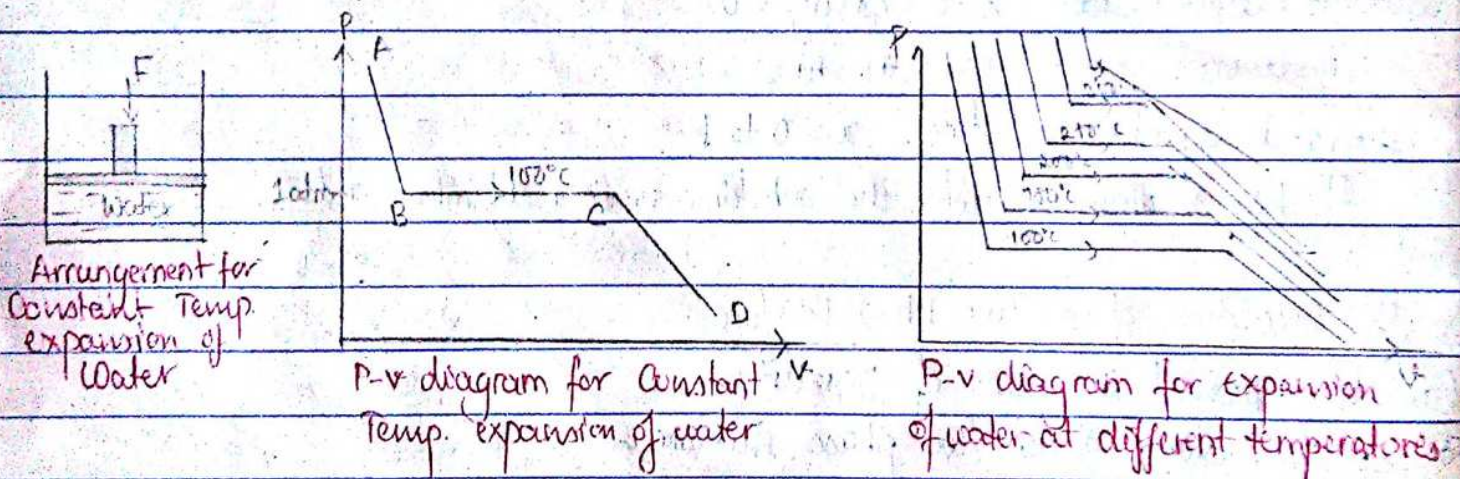 F
Water
Arrangement for
Constant Temp.
expansion of
Water
P
A
1 atm
B
100°C
C
D
V
P-v diagram for Constant
Temp. expansion of water
P
210°C
200°C
100°C
V
P-v diagram for Expansion
of water at different temperatures